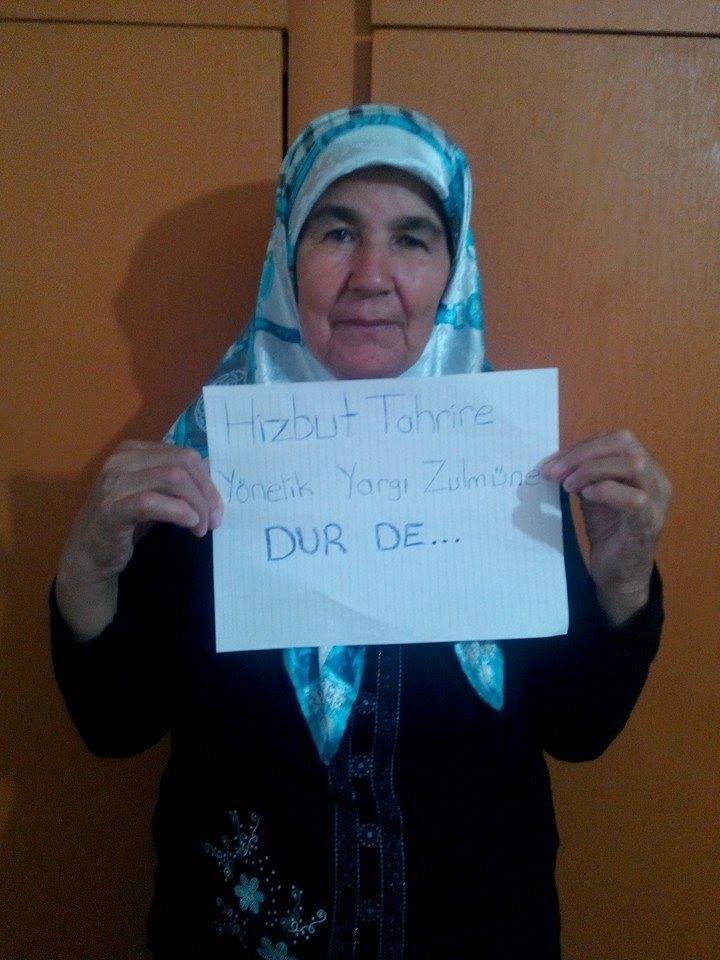 Hizbut Tahrire
Yönelik Yargı Zulmüne
DUR DE...